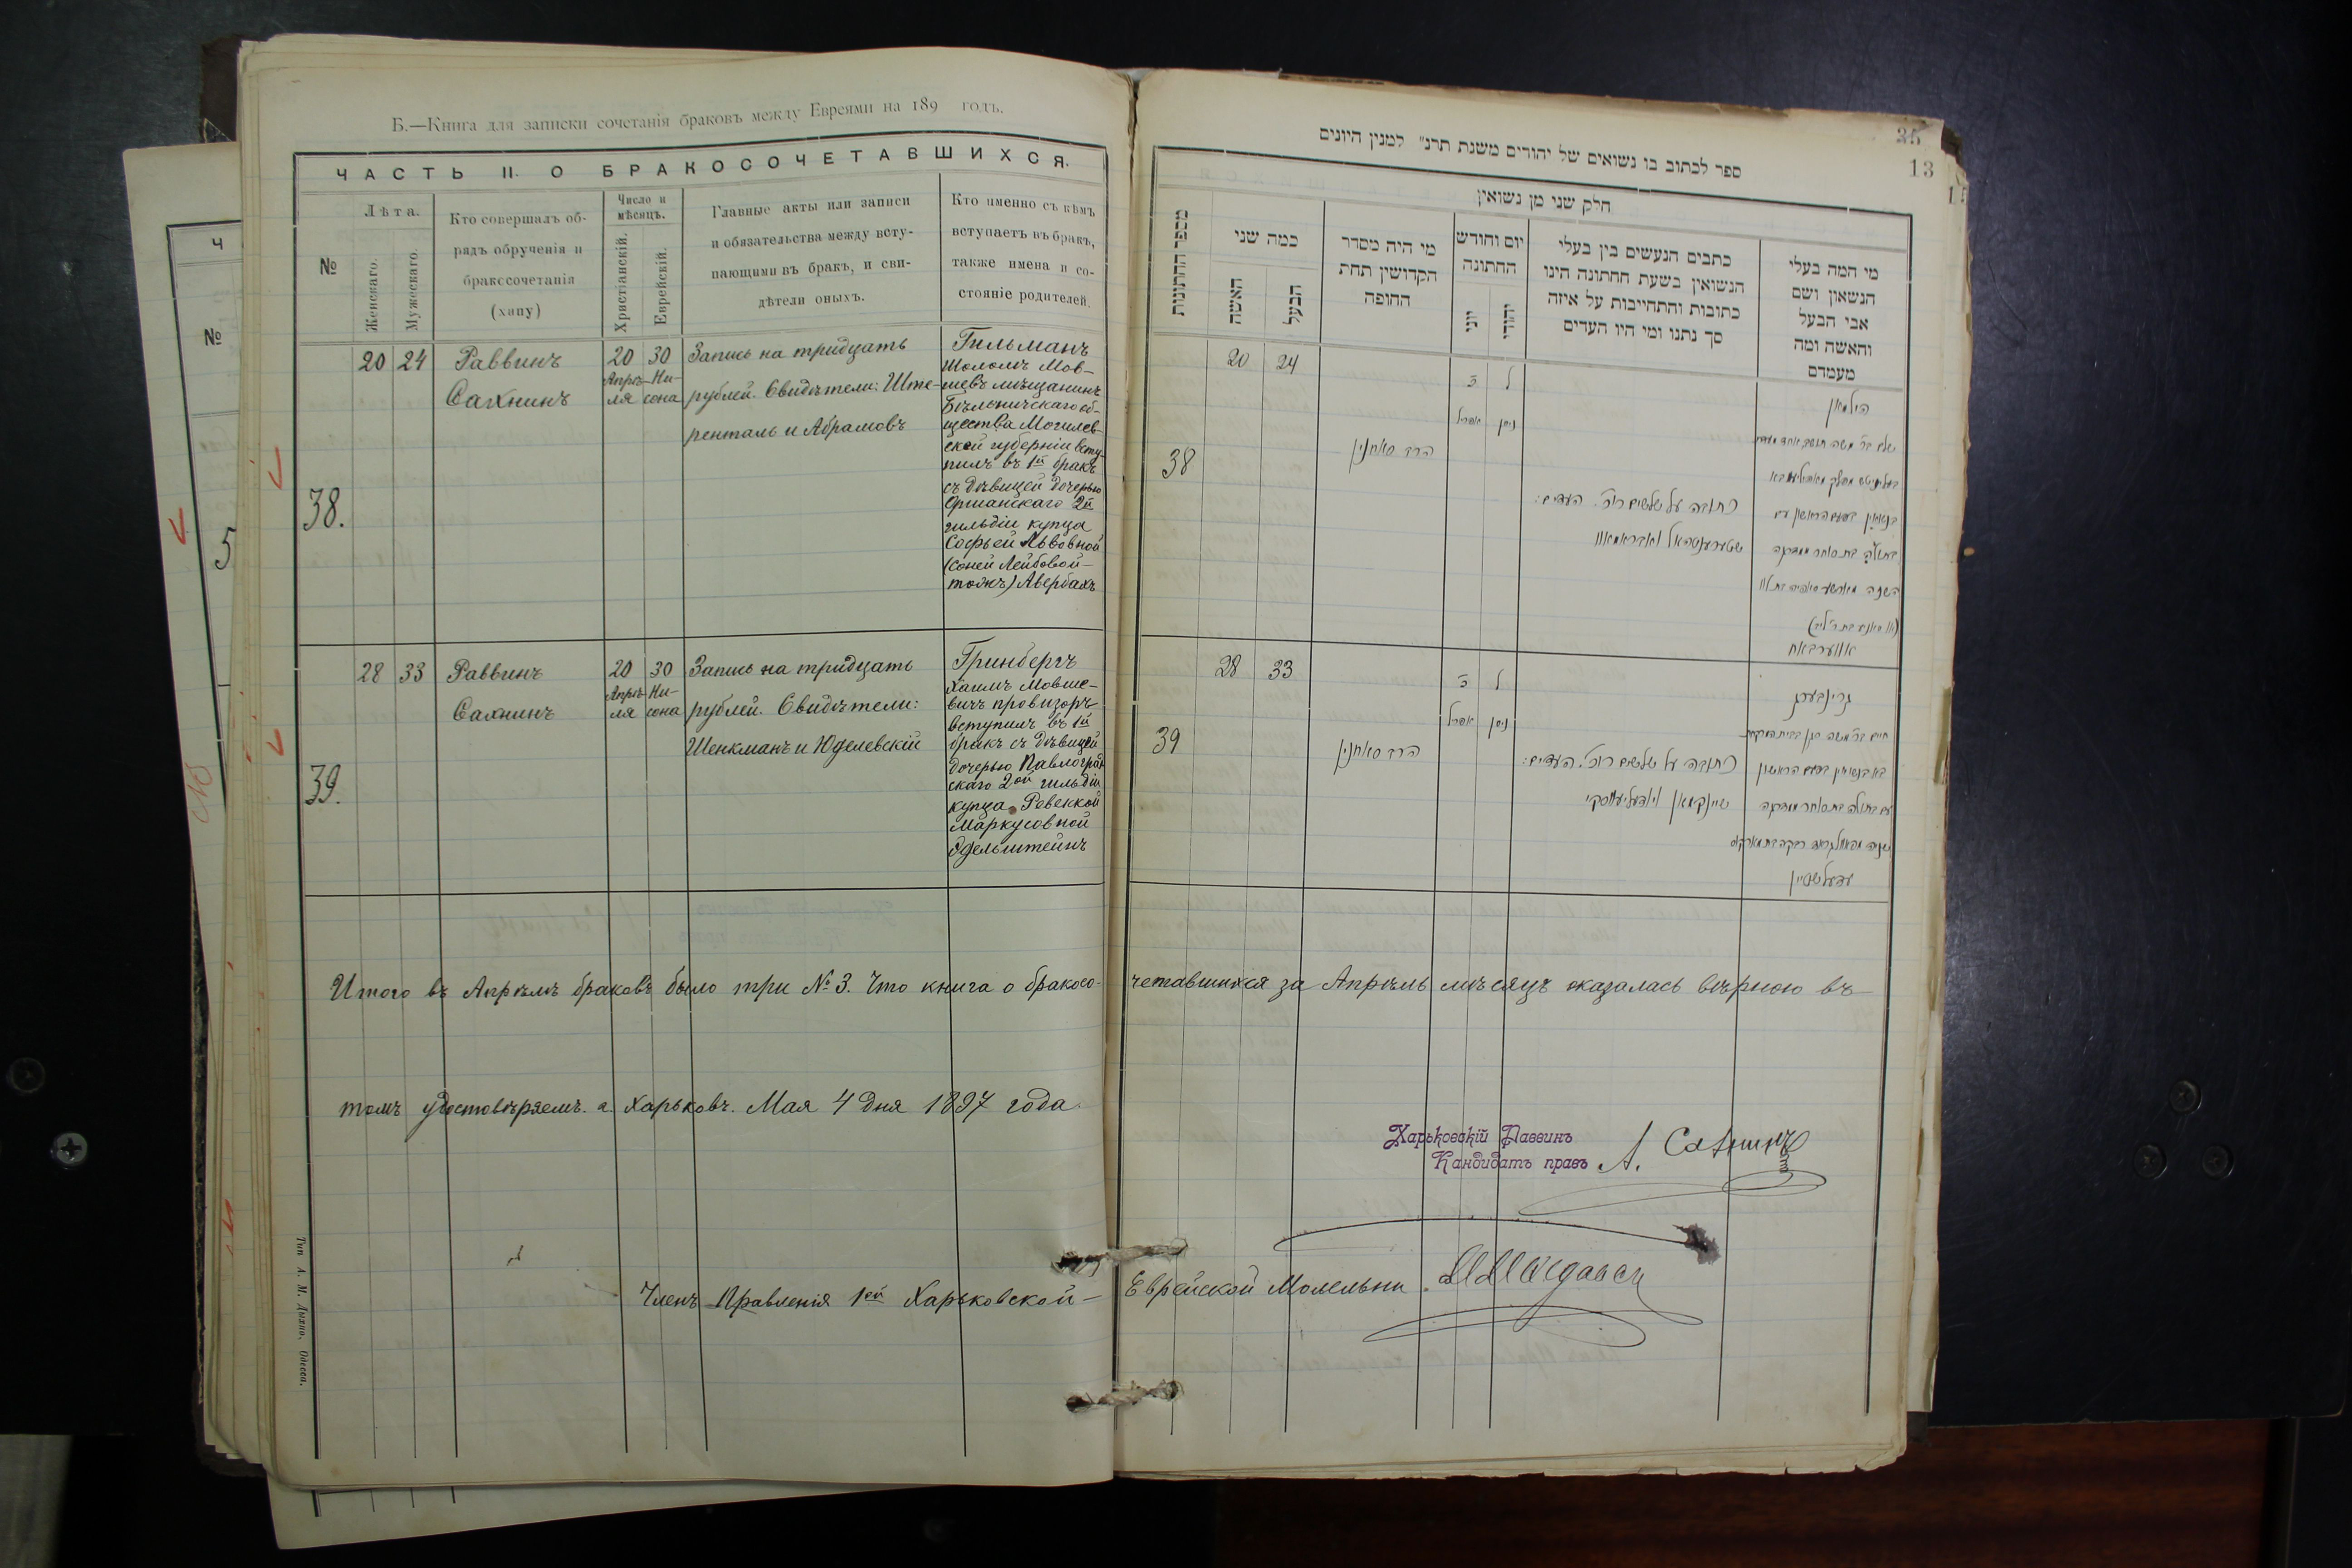 Б.—Книга для записки сочетанія браковъ между Евреями на 189 годъ.
ЧАСТЬ II. О БРАКОСОЧЕТАВШИХСЯ.
№
Лѣта.
Женскаго.
Мужескаго.
Кто совершалъ об-
рядъ обрученія и
бракосочетанія
(хапу)
Число и
мѣсяцъ.
Христіанскій.
Еврейскій.
Главные акты или записи
и обязательства между всту-
пающими въ бракъ, и сви-
дѣтели оныхъ.
Кто именно съ кѣмъ
вступаетъ въ бракъ,
также имена и со-
стояніе родителей.
38.
20 24
Раввинъ
Сахнинъ
20 30
Апрѣ- Ни-
ля сона
Запись на тридцать
рублей. Свидѣтели:Ште-
ренталь и Абрамовъ
Гильманъ
Шоломъ Мов-
шевъ мѣщанинъ
Бѣлыничскаго об-
щества Могилев-
ской губерніи всту-
пилъ въ 1й бракъ
съ дѣвицей дочерью
Оршанскаго 2й
гильдіи купца
Софьей Львовной
(Соней Лейбовой-
тожъ) Авербахъ
39.
28 33
Раввинъ
Сахнинъ
20 30
Апрѣ- Ни-
ля сона
Запись на тридцать
рублей. Свидѣтели:
Шенкманъ и Юделевскій
Гринбергъ
Хаимъ Мовше-
вичъ провизоръ
вступилъ въ 1й
бракъ съ дѣвицей
дочерью Павлоград
скаго 2ой гильдіи
купца Ревеккой
Маркусовной
Эдельштейнъ
Итого въ Апрѣлѣ браковъ было три № 3. Что книга о бракосо-
четавшихся за Апрѣль мѣсяцъ оказалась вѣрною въ
томъ удостовѣряемъ. г. Харьковъ. Мая 4 дня 1897 года.
Харьковскій Раввинъ
Кандидатъ правъ А. Сахнинъ
Членъ Правленія 1ой Харьковской-
Еврейской Молельни
Тип. А. М. Дыхно, Одесса.
35
13
ספר לכתוב בו נשואים של יהודים משנת תרנ״ למנין היונים
חלק שני מן נשואין
מספר החתונות
כמה שני
האשה
הבעל
מי היה מסדר
הקדושין תחת
החופה
יום וחודש
החתונה
יוני
יהודי
כתבים הנעשים בין בעלי
הנשואין בשעת חחתונה הינו
כתובות והתחייבות על איזה
סך נתנו ומי היו העדים
מי המה בעלי
הנשאון ושם
אבי הבעל
והאשה ומה
מעמדם
38
20 24
הרב סאחנין
כ ל
אפריל ניסן
כתובה על שלשים רו״כ. העדים:
שטערענטהאל ואבראמאוו
הילמאן
אווערבאח
39
28 33
הרב סאחנין
כ ל
אפריל ניסן
כתובה על שלשים רו״כ. העדים:
שיינקמאן ויודעלעווסקי
גרינבערג
עדעלשטיין